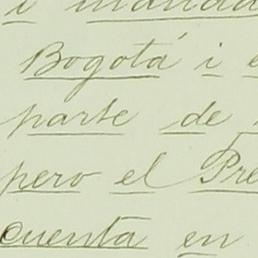 i
Bogotá i
parte de
pero el
cuenta en